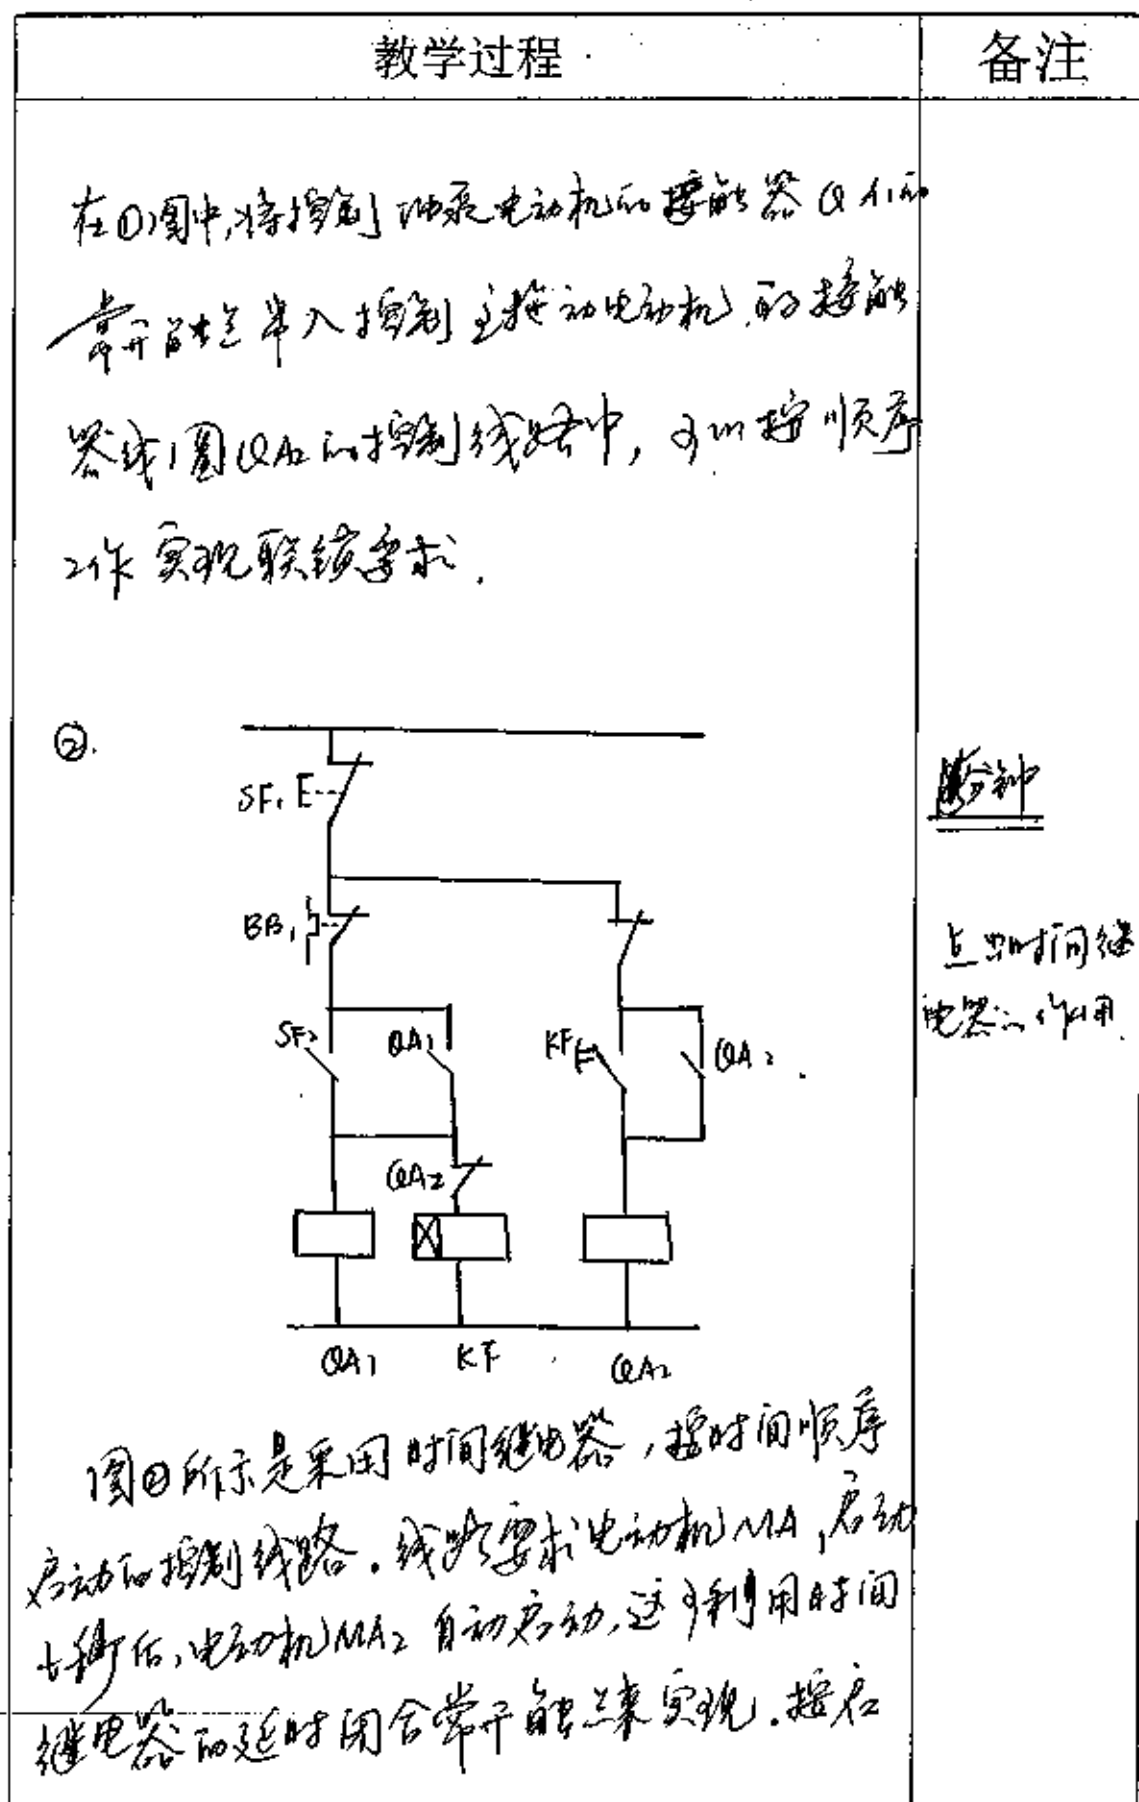 教学过程
备注
在①图中,将控制油泵电动机的接触器QA1的
常开触点串入控制主拖动电动机的接触
器线圈QA2的控制线路中,可以按顺序
工作实现联锁要求.
②.
SF1
BB1
SF2 QA1 KF QA2
QA2
QA1 KF QA2
分钟
点出时间继
电器的作用.
图②所示是采用时间继电器,按时间顺序
启动的控制线路.线路要求电动机MA1启动
t秒后,电动机MA2自动启动,这可利用时间
继电器的延时闭合常开触点来实现.按启